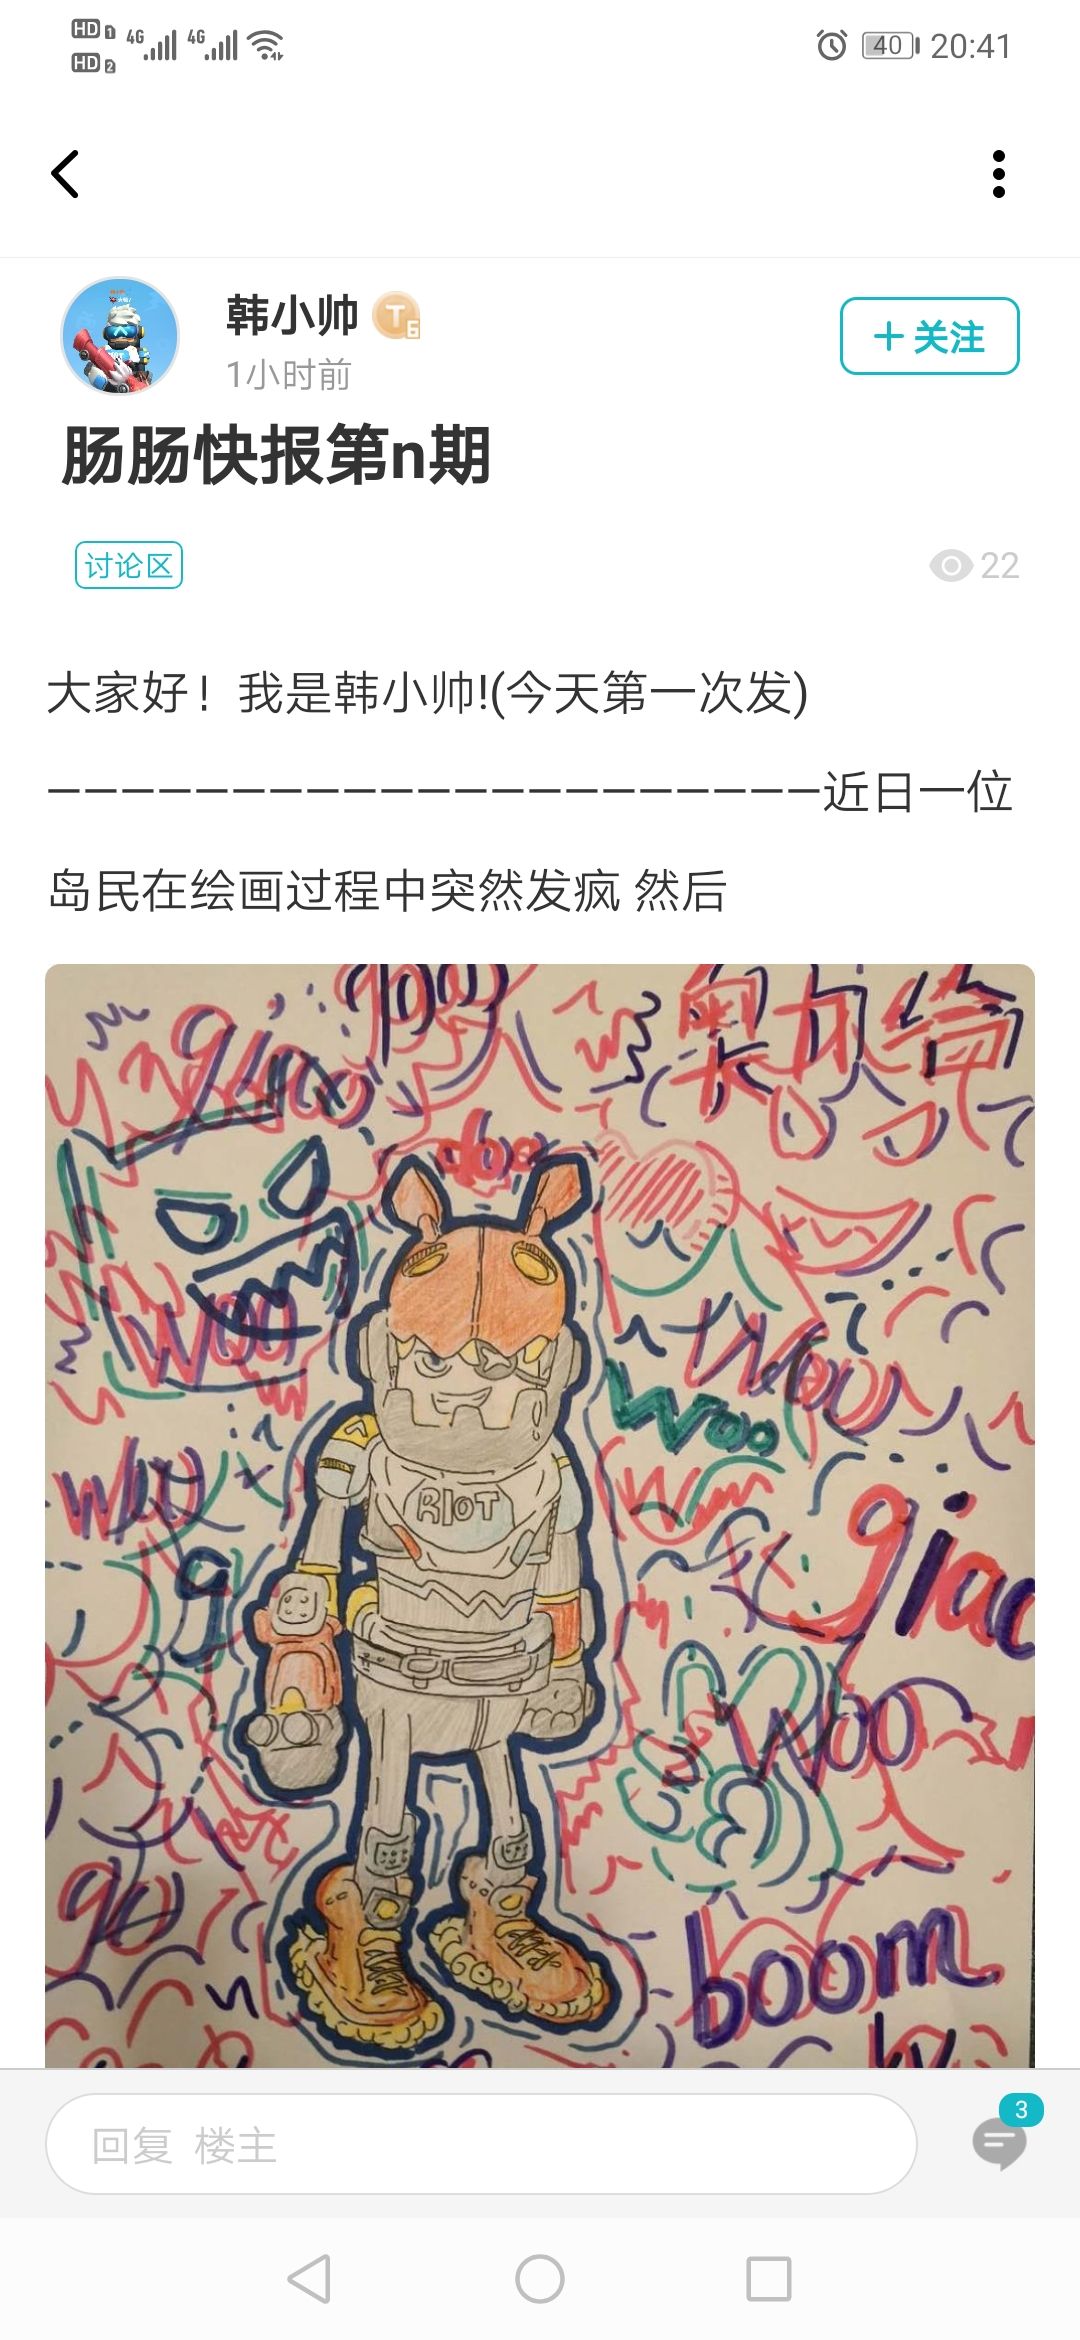 HD 1 4G 4G
HD 2
40 20:41
韩小帅 T6
1小时前
+ 关注
肠肠快报第n期
讨论区
22
大家好！我是韩小帅!(今天第一次发)
—————————————————————近日一位
岛民在绘画过程中突然发疯 然后
giao
奥力给
woo
Woo
Woo
RIOT
giao
Woo
go
boom
回复 楼主
3